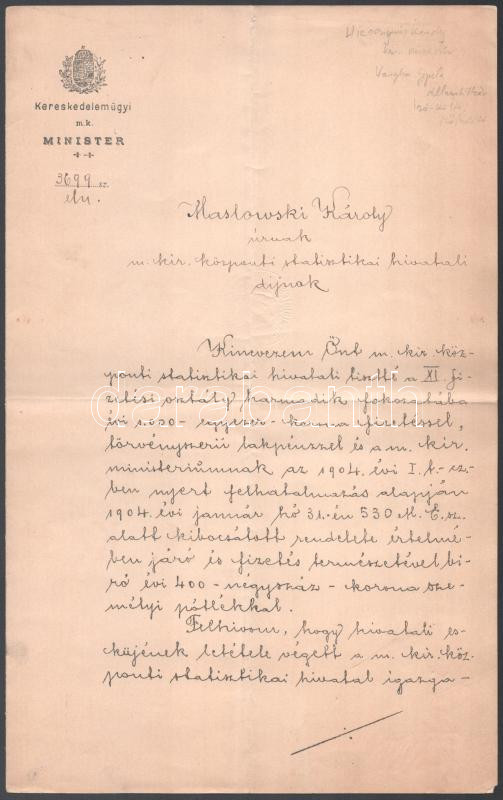 Kereskedelemügyi
m.k.
MINISTER
3699 sz.
eln.
Vargha Gyula
Maslowski Károly
úrnak
m. kir. központi statisztikai hivatali
dijnok
Kinevezem Önt m. kir. köz-
ponti statisztikai hivatali tisztté a XI. fi-
zetési osztály harmadik fokozatába
évi 1.000 - egyezer - korona fizetéssel,
törvényszerü lakpénzzel és a m. kir.
ministeriumnak az 1904. évi I. t.-cz-
ben nyert felhatalmazás alapján
1904. évi január hó 31-én 530 M.E. sz.
alatt kibocsátott rendelete értelmé-
ben járó és fizetés természetével bi-
ró évi 400 - négyszáz - korona sze-
mélyi pótlékkal.
Felhivom, hogy hivatali es-
küjének letétele végett a m. kir. köz-
ponti statisztikai hivatal igazga-
darabanth.com